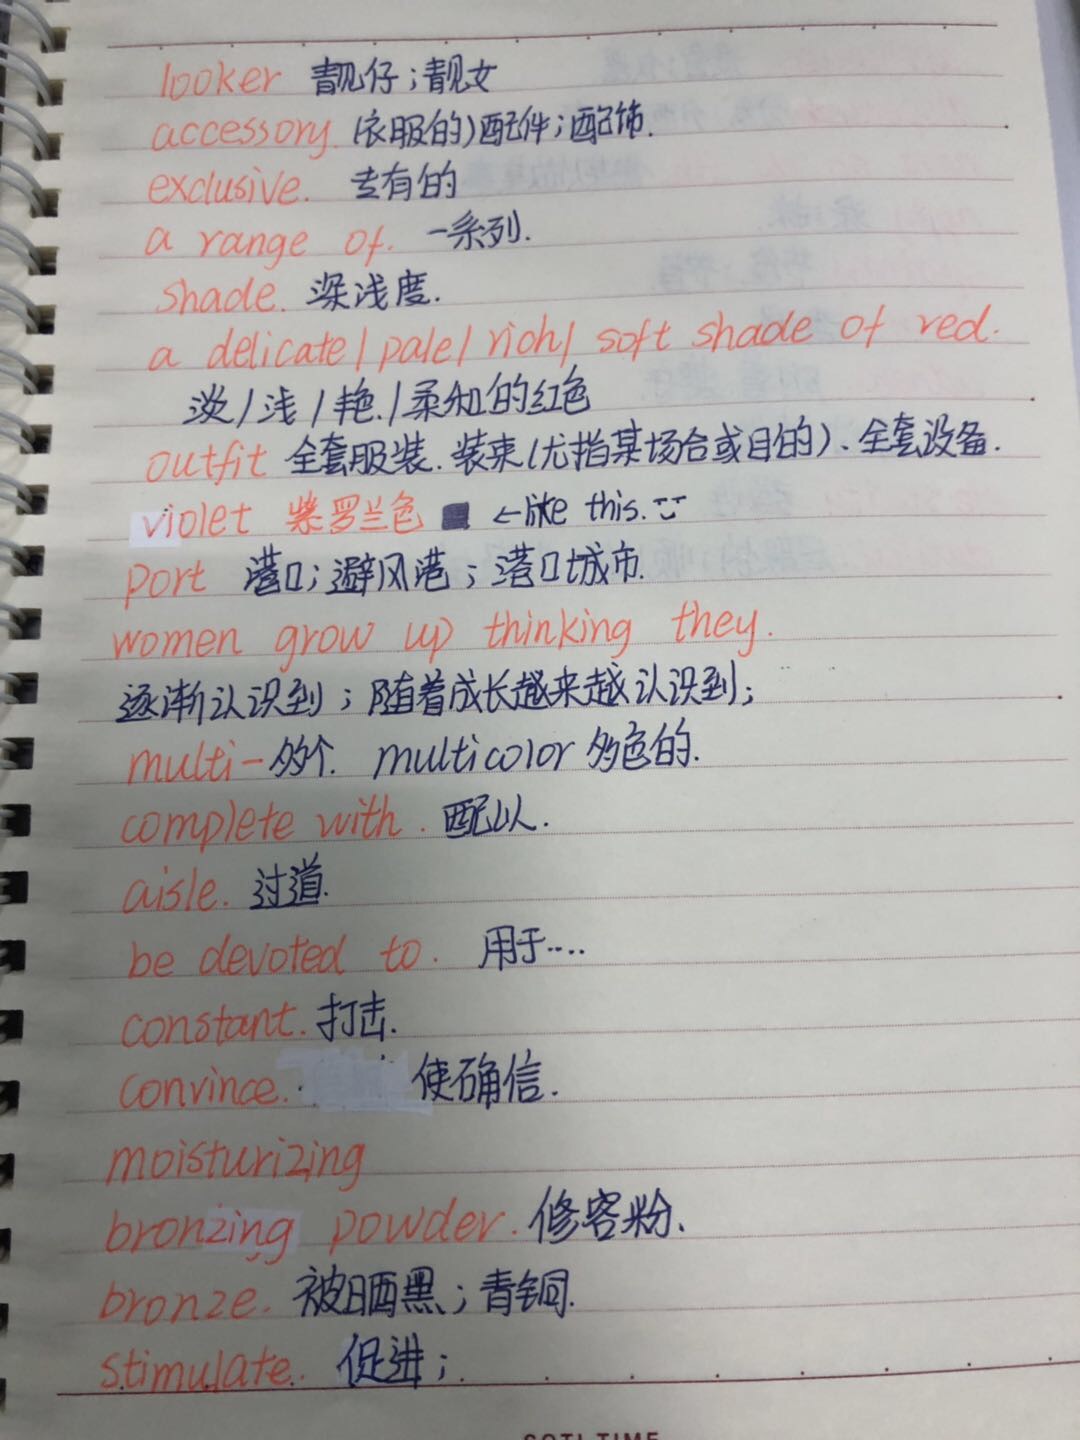 looker 靓仔；靓女
accessory. (衣服的)配件；配饰.
exclusive. 专有的
a range of. 一系列.
shade. 深浅度.
a delicate/pale/rich/ soft shade of red.
淡/浅/艳/柔和的红色
outfit 全套服装.装束(尤指某场合或目的)、全套设备.
violet 紫罗兰色 ←like this.
port 港口；避风港；港口城市.
women grow up thinking they.
逐渐认识到；随着成长越来越认识到；
multi-多个. multicolor 多色的.
complete with. 配以.
aisle. 过道.
be devoted to. 用于....
constant. 打击.
convince. 使确信.
moisturizing
bronzing powder. 修容粉.
bronze. 被晒黑；青铜.
stimulate. 促进；